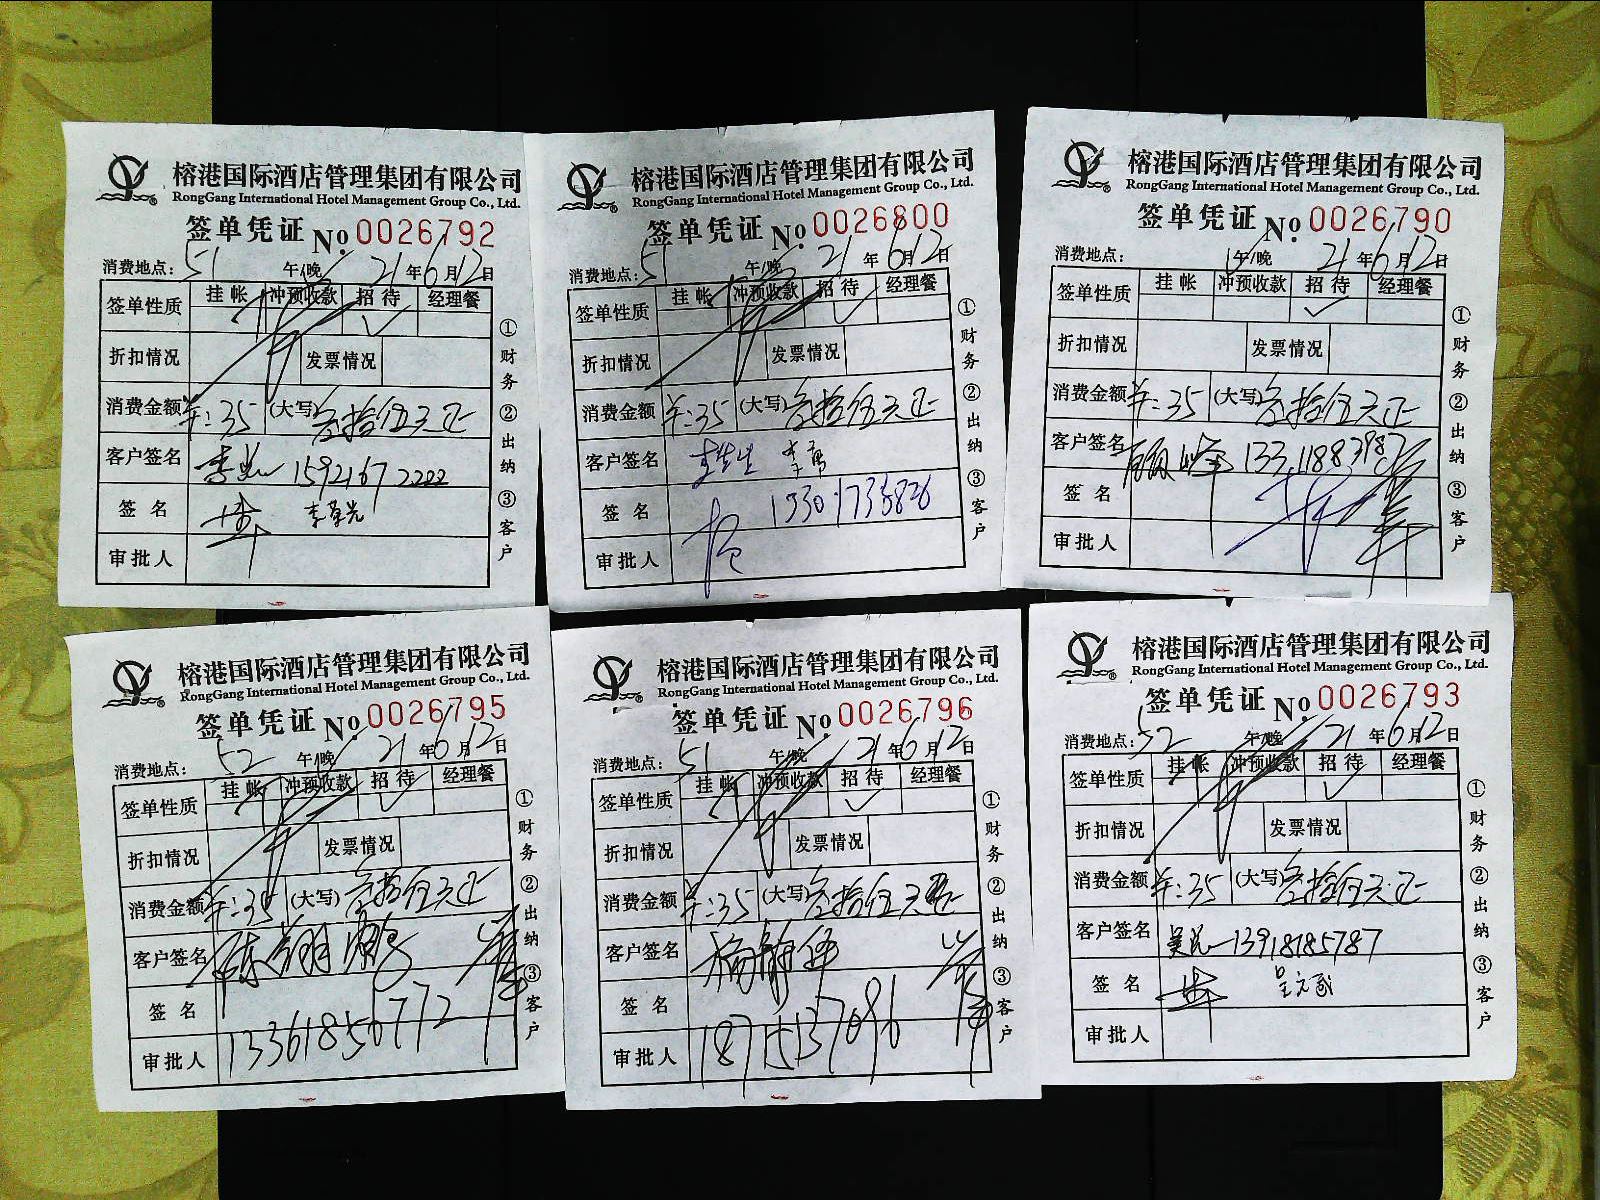 榕港国际酒店管理集团有限公司
RongGang International Hotel Management Group Co., Ltd.
签单凭证 No. 0026792
消费地点: 51 午/晚 21年6月12日
签单性质 挂帐 冲预收款 招待 ✓ 经理餐
折扣情况 发票情况
消费金额 羊: 35 (大写) 叁拾伍元正
客户签名 15921672222
签名
审批人
①财务 ②出纳 ③客户
榕港国际酒店管理集团有限公司
RongGang International Hotel Management Group Co., Ltd.
签单凭证 No. 0026800
消费地点: 51 午/晚 21年6月12日
签单性质 挂帐 冲预收款 招待 ✓ 经理餐
折扣情况 发票情况
消费金额 羊: 35 (大写) 叁拾伍元正
客户签名
签名
审批人
①财务 ②出纳 ③客户
榕港国际酒店管理集团有限公司
RongGang International Hotel Management Group Co., Ltd.
签单凭证 No. 0026790
消费地点: 午/晚 21年6月12日
签单性质 挂帐 冲预收款 招待 ✓ 经理餐
折扣情况 发票情况
消费金额 羊: 35 (大写) 叁拾伍元正
客户签名
签名
审批人
①财务 ②出纳 ③客户
榕港国际酒店管理集团有限公司
RongGang International Hotel Management Group Co., Ltd.
签单凭证 No. 0026795
消费地点: 52 午/晚 21年6月12日
签单性质 挂帐 冲预收款 招待 ✓ 经理餐
折扣情况 发票情况
消费金额 羊: 35 (大写) 叁拾伍元正
客户签名 陈翔鹏
签名
审批人 13361856772
①财务 ②出纳 ③客户
榕港国际酒店管理集团有限公司
RongGang International Hotel Management Group Co., Ltd.
签单凭证 No. 0026796
消费地点: 51 午/晚 21年6月12日
签单性质 挂帐 冲预收款 招待 ✓ 经理餐
折扣情况 发票情况
消费金额 羊: 35 (大写) 叁拾伍元正
客户签名
签名
审批人 18715137096
①财务 ②出纳 ③客户
榕港国际酒店管理集团有限公司
RongGang International Hotel Management Group Co., Ltd.
签单凭证 No. 0026793
消费地点: 52 午/晚 21年6月12日
签单性质 挂帐 冲预收款 招待 ✓ 经理餐
折扣情况 发票情况
消费金额 羊: 35 (大写) 叁拾伍元正
客户签名 13918185787
签名
审批人
①财务 ②出纳 ③客户